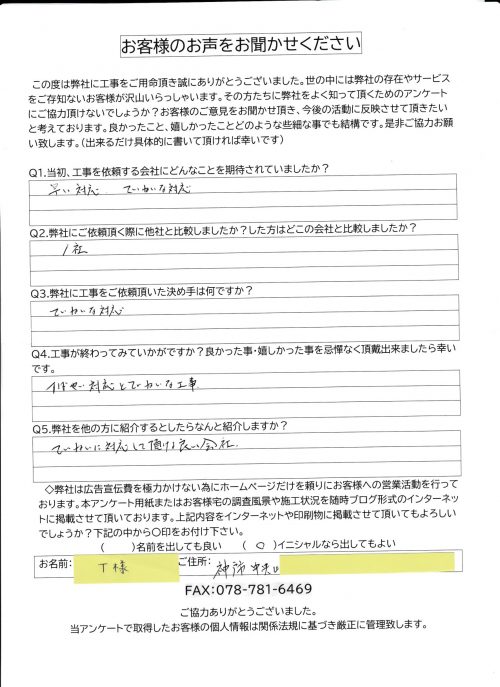 お客様のお声をお聞かせください
この度は弊社に工事をご用命頂き誠にありがとうございました。世の中には弊社の存在やサービス
をご存知ないお客様が沢山いらっしゃいます。その方たちに弊社をよく知って頂くためのアンケート
にご協力頂けないでしょうか？お客様のご意見をお聞かせ頂き、今後の活動に反映させて頂きたい
と考えております。良かったこと、嬉しかったことどのような些細な事でも結構です。是非ご協力お願
い致します。（出来るだけ具体的に書いて頂ければ幸いです）
Q1.当初、工事を依頼する会社にどんなことを期待されていましたか？
早い対応 ていねいな対応
Q2.弊社にご依頼頂く際に他社と比較しましたか？した方はどこの会社と比較しましたか？
1社
Q3.弊社に工事をご依頼頂いた決め手は何ですか？
ていねいな対応
Q4.工事が終わってみていかがですか？良かった事・嬉しかった事を忌憚なく頂戴出来ましたら幸い
です。
すばやい対応とていねいな工事
Q5.弊社を他の方に紹介するとしたらなんと紹介しますか？
ていねいに対応して頂ける良い会社
◇弊社は広告宣伝費を極力かけない為にホームページだけを頼りにお客様への営業活動を行って
おります。本アンケート用紙またはお客様宅の調査風景や施工状況を随時ブログ形式のインターネッ
トに掲載させて頂いております。上記内容をインターネットや印刷物に掲載させて頂いてもよろしい
でしょうか？下記の中から〇印をお付け下さい。
（　　）名前を出しても良い　（ ○ ）イニシャルなら出してもよい
お名前： T様 ご住所： 神戸市中央区
FAX：078-781-6469
ご協力ありがとうございました。
当アンケートで取得したお客様の個人情報は関係法規に基づき厳正に管理致します。